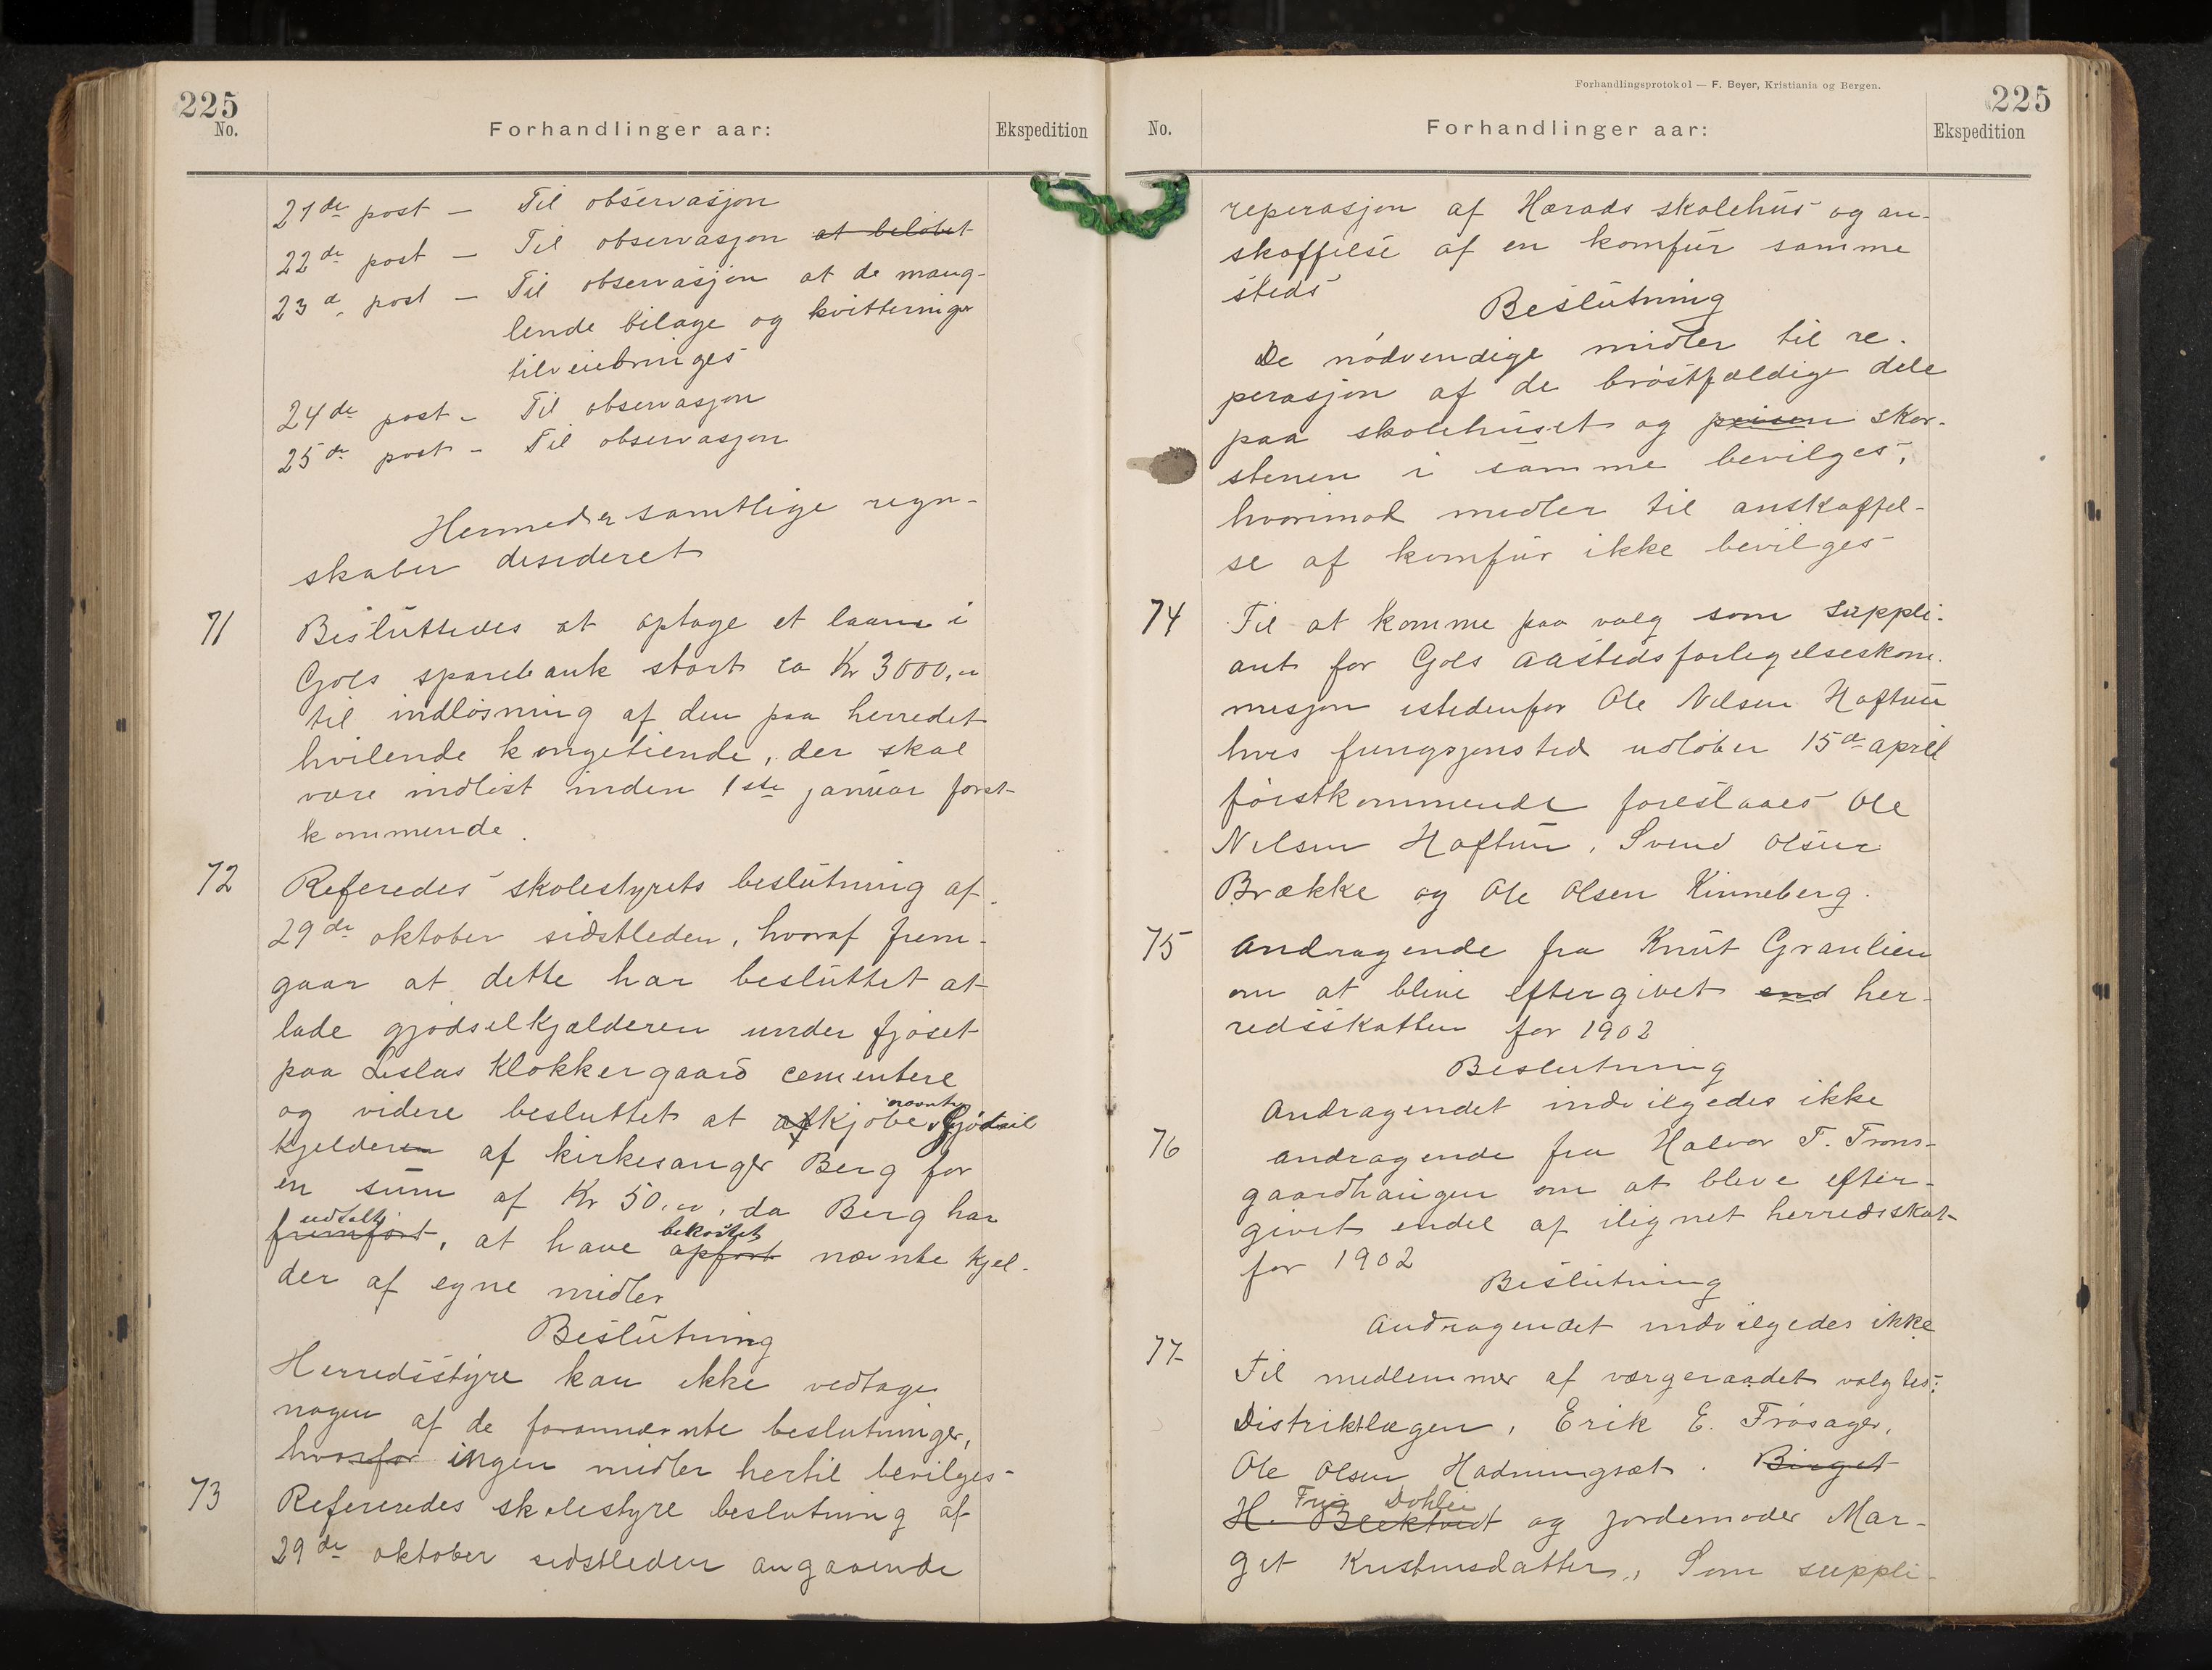 225
No.
Forhandlinger aar:
Ekspedition
21de post — Til observasjon
22de post — Til observasjon at beløbet
23d. post — Til observasjon at de mang-
lende bilage og kvitteringer
tilveiebringes
24de post - Til observasjon
25de post - Til observasjon
Hermed er samtlige regn-
skaber desideret
71 Besluttedes at optage et laan i
Gols sparebank stort ca Kr 3000,00
til indløsning af den paa herredet
hvilende kongetiende, der skal
være indløst inden 1ste januar først-
kommende.
72 Referedes skolestyrets beslutning af
29de oktober sidstleden, hvoraf frem-
gaar at dette har besluttet at
lade gjødselkjælderen under fjøset
paa Leslas Klokkergaard cementere
nævnte
og videre besluttet at afkjøbe Gjødsel
kjelderen af kirkesanger Berg for
en sum af Kr 50.00, da Berg har
udtalt bekostet
fremført, at have opført nævnte kjel-
der af egne midler
Beslutning
Herredsstyre kan ikke vedtage
nogen af de forannævnte beslutninger,
hvorfor ingen midler hertil bevilges-
73 Refereredes skolestyre beslutning af
29de oktober sidstleden angaaende
Forhandlingsprotokol — F. Beyer, Kristiania og Bergen.
225
No.
Forhandlinger aar:
Ekspedition
reperasjon af Hærads skolehus og an-
skaffelse af en komfur samme
steds
Beslutning
De nødvendige midler til re-
perasjon af de brøstfældige dele
paa skolehuset og peisen skor-
stenen i samme bevilges,
hvorimod midler til anskaffel-
se af komfur ikke bevilges
74 Til at komme paa valg som suppli-
ant for Gols aastedsforligelseskom-
misjon istedenfor Ole Nilsen Haftun
hvis fungsjonstid udløber 15de april
førstkommende foreslaaes Ole
Nilsen Haftun, Svend Olsen
Brække og Ole Olsen Kinneberg.
75 Andragende fra Knut Granlien
om at blive eftergivet end her-
redsskatten for 1902
Beslutning
Andragendet indvilgedes ikke
76 Andragende fra Halvor T. Trons-
gaardhaugen om at blive efter-
givet endel af ilignet herredsskat
for 1902
Beslutning
Andragendet indvilgedes ikke
77 Til medlemmer af værgeraadet valgtes:
Distriktlægen, Erik E. Frøsager,
Ole Olsen Hadmingsæt. Birget
Frig Dohlie
H. Blektvedt og jordemoder Mar-
get Kristensdatter, Som suppli-